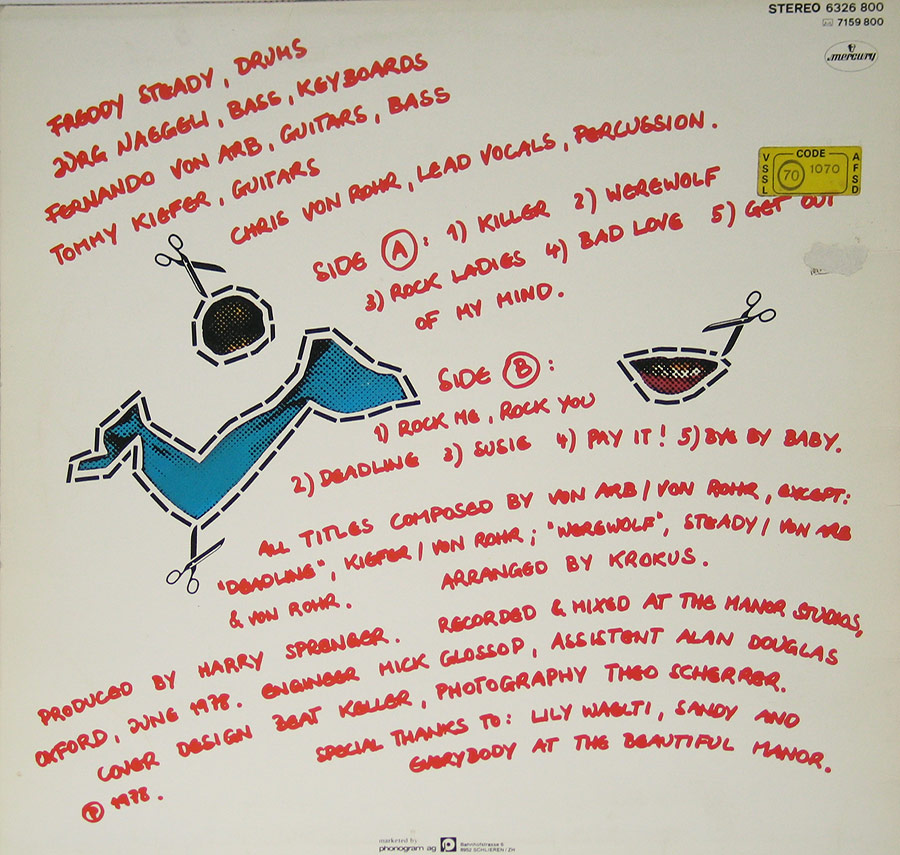 STEREO 6326 800
7159 800
mercury
FREDDY STEADY, DRUMS
JÜRG NAEGELI, BASS, KEYBOARDS
FERNANDO VON ARB, GUITARS, BASS
TOMMY KIEFER, GUITARS
CHRIS VON ROHR, LEAD VOCALS, PERCUSSION.
VSSL CODE AFSD
70 1070
SIDE A: 1) KILLER 2) WEREWOLF
3) ROCK LADIES 4) BAD LOVE 5) GET OUT
OF MY MIND.
SIDE B:
1) ROCK ME, ROCK YOU
2) DEADLINE 3) SUSIE 4) PAY IT! 5) BYE BY BABY.
ALL TITLES COMPOSED BY VON ARB / VON ROHR, EXCEPT:
"DEADLINE", KIEFER / VON ROHR; "WEREWOLF", STEADY / VON ARB
& VON ROHR. ARRANGED BY KROKUS.
PRODUCED BY HARRY SPRENGER. RECORDED & MIXED AT THE MANOR STUDIOS,
OXFORD, JUNE 1978. ENGINEER MICK GLOSSOP, ASSISTENT ALAN DOUGLAS
COVER DESIGN BEAT KELLER, PHOTOGRAPHY THEO SCHERRER.
SPECIAL THANKS TO: LILY WAELTI, SANDY AND
EVERYBODY AT THE BEAUTIFUL MANOR.
℗ 1978.
marketed by
phonogram ag
Bahnhofstrasse 5
8952 SCHLIEREN / ZH